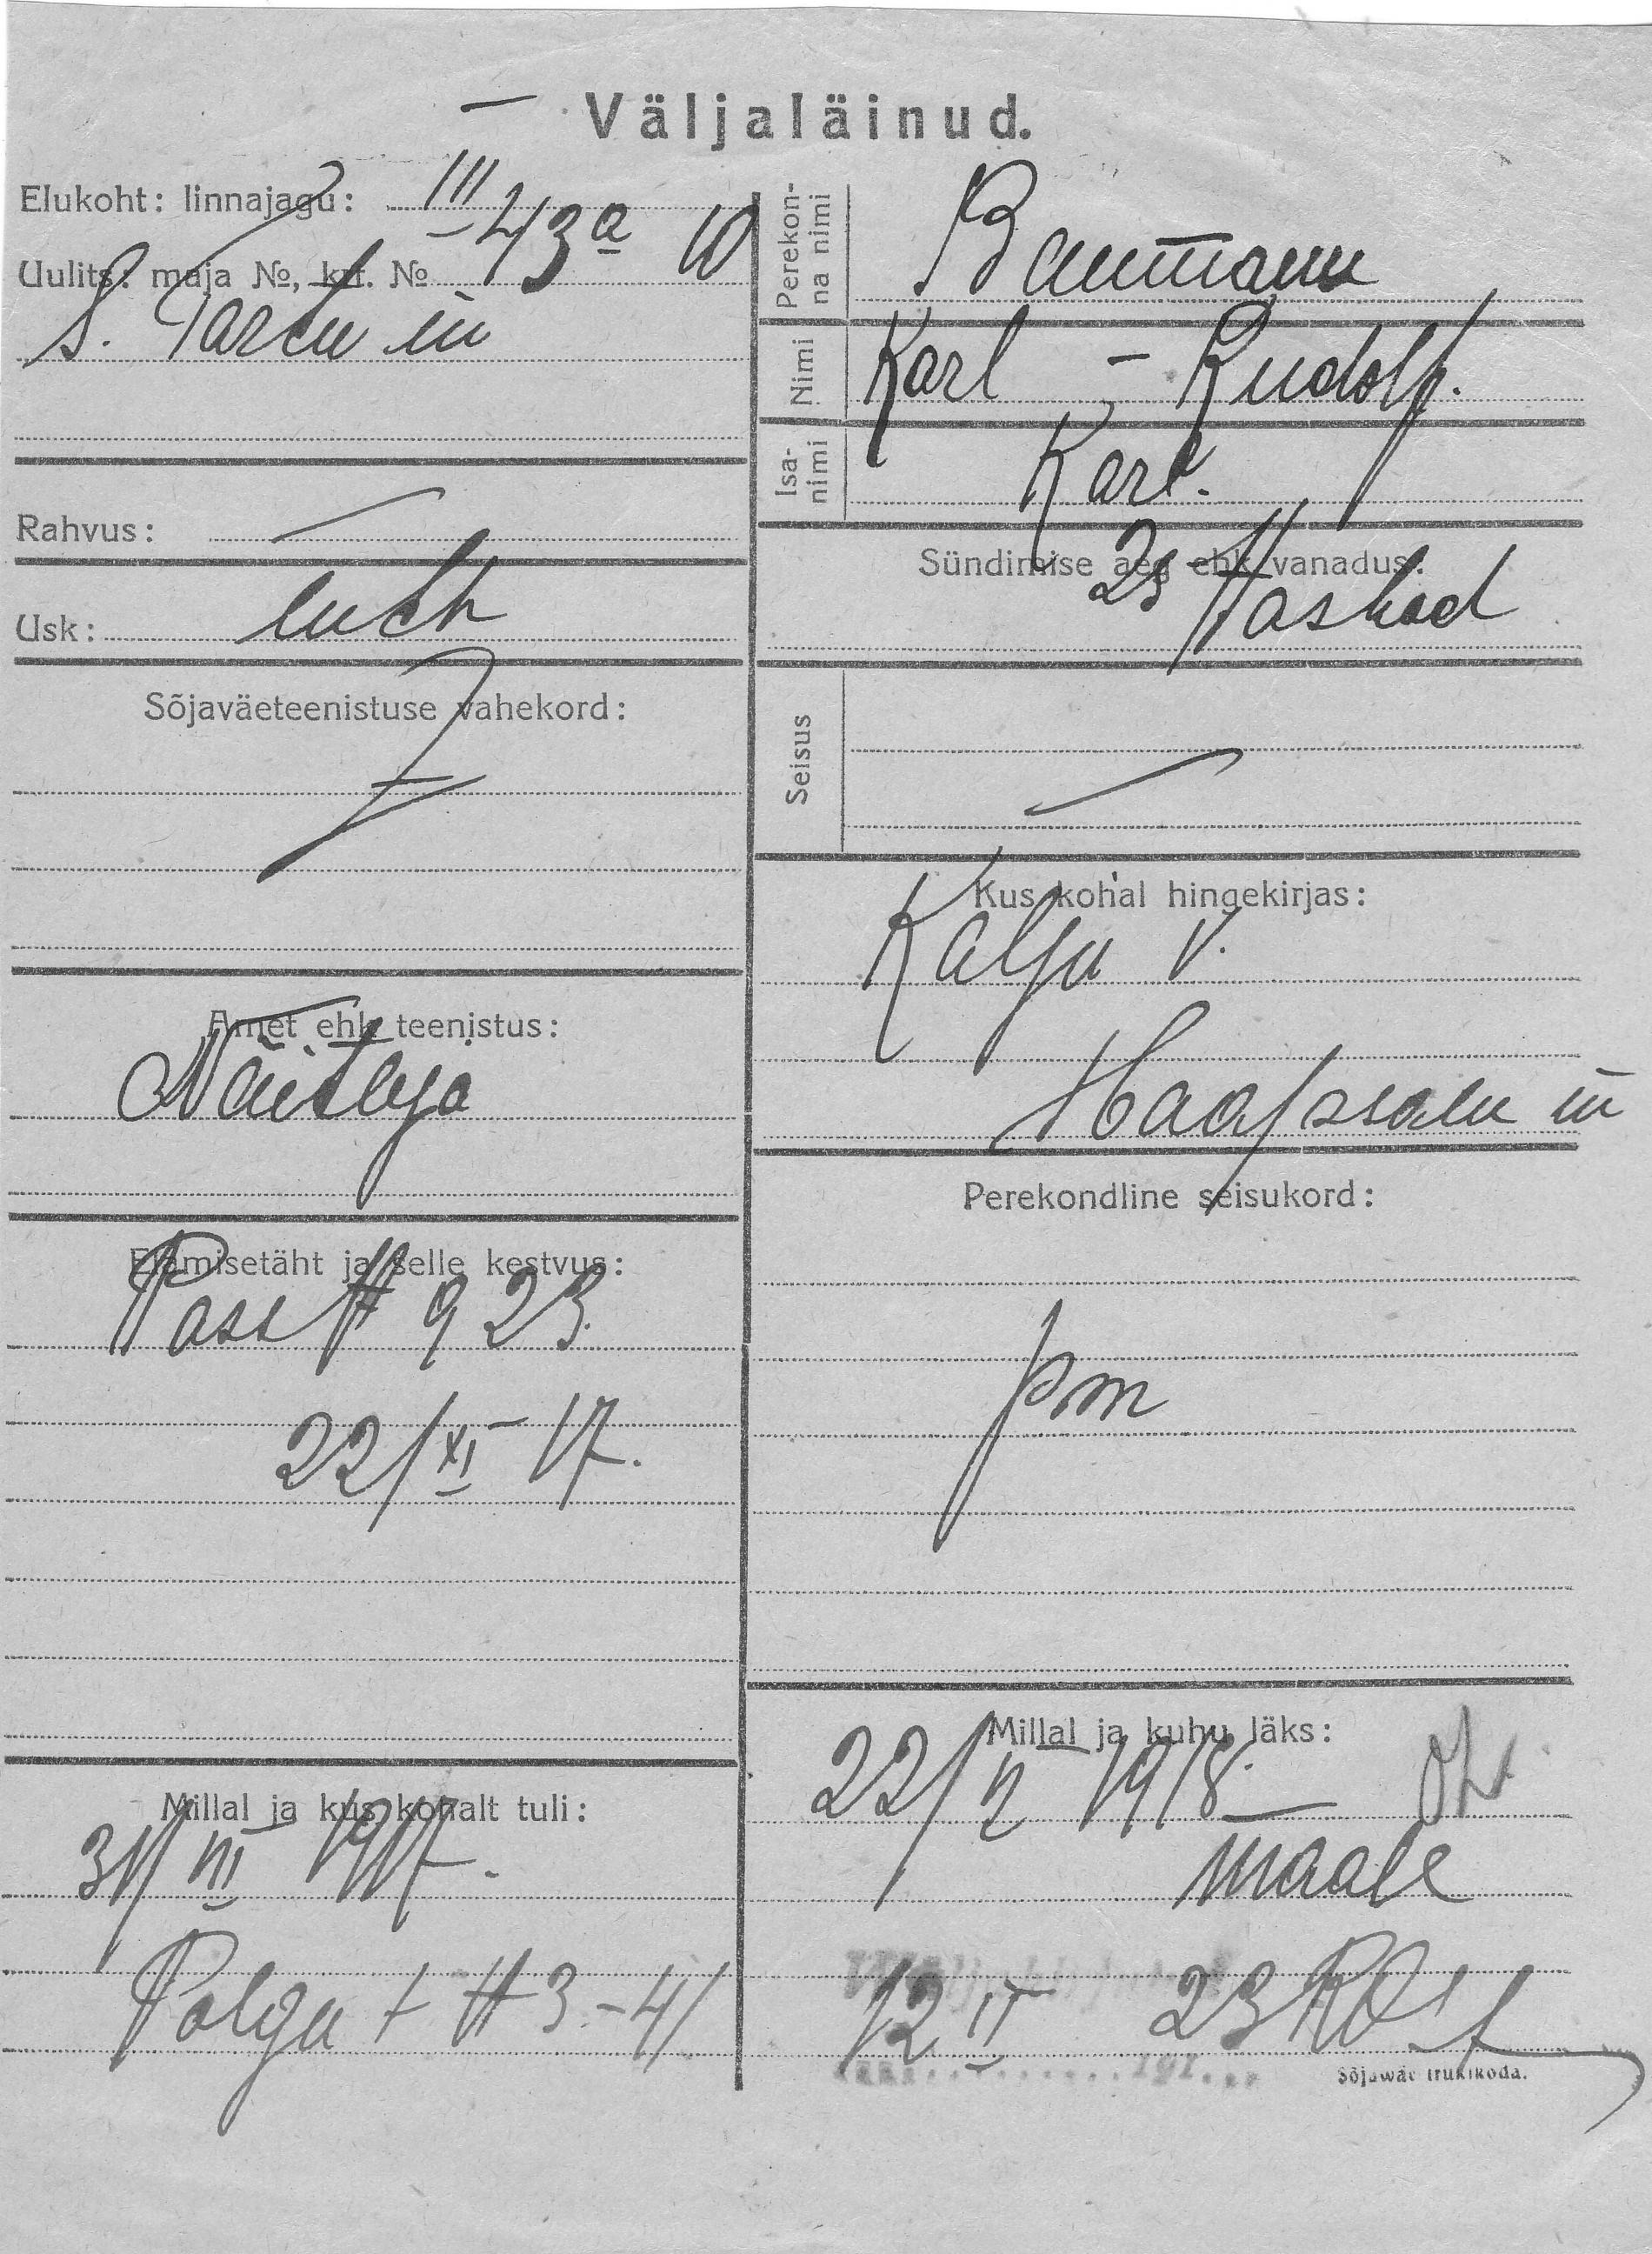 Väljaläinud.
Elukoht: linnajagu: III
43a 10
Uulits: maja №, krt. №
S. Tartu m
Rahvus: —
Usk: luth
Sõjaväeteenistuse vahekord:
Amet ehk teenistus:
Näitleja
Elamisetäht ja selle kestvus:
Pass № 923.
22/XI 17.
Millal ja kus kohalt tuli:
31/III 1917.
№ 3-41
Perekonna nimi
Baumann
Nimi
Karl - Rudolf.
Isanimi
Karl.
Sündimise aeg ehk vanadus:
25 aastad
Seisus
—
Kus kohal hingekirjas:
Kalju v.
Haapsalu m
Perekondline seisukord:
pm
Millal ja kuhu läks:
22/II 1918.
maale
12 II 23
191
Sõjawäe trükikoda.